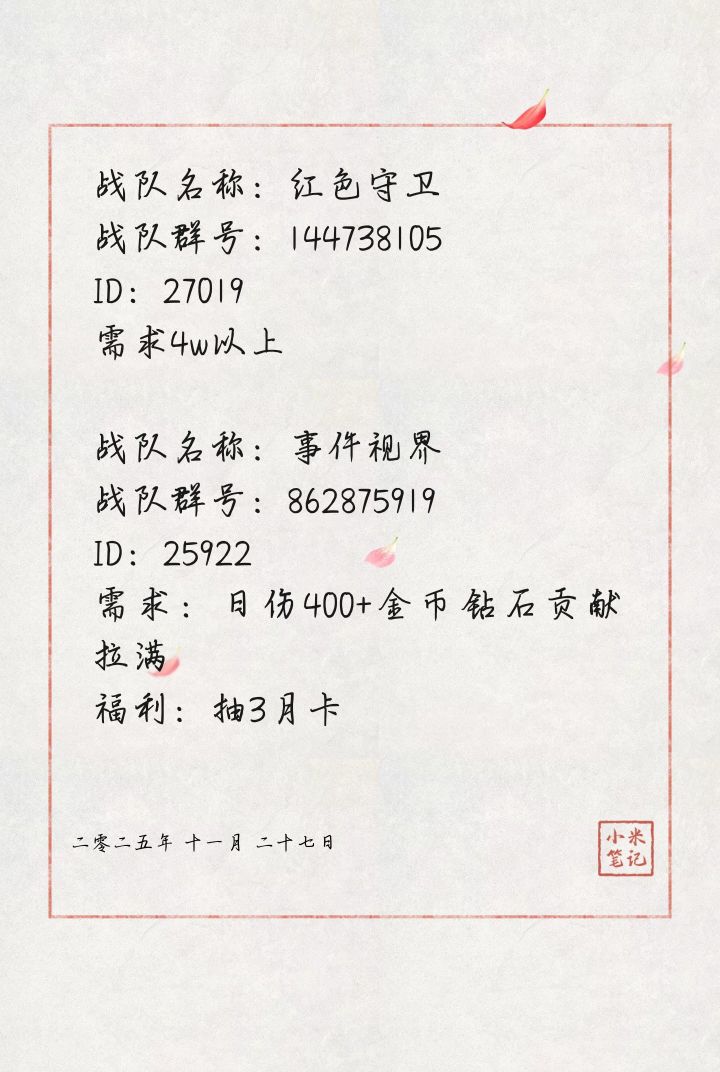 战队名称：红色守卫
战队群号：144738105
ID：27019
需求4w以上
战队名称：事件视界
战队群号：862875919
ID：25922
需求：日伤400+金币钻石贡献
拉满
福利：抽3月卡
二零二五年 十一月 二十七日
小米
笔记